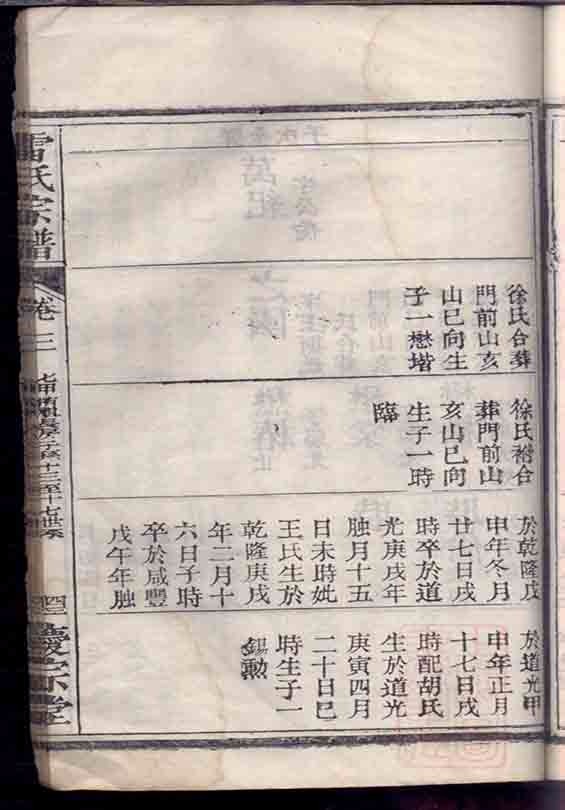 徐氏合葬
門前山亥
山巳向生
子一懋堦
徐氏祔合
葬門前山
亥山巳向
生子一時
臨
於乾隆戊
申年冬月
廿七日戌
時卒於道
光庚戌年
腊月十五
日未時妣
王氏生於
乾隆庚戌
年二月十
六日子時
卒於咸豐
戊午年腊
於道光甲
申年正月
十七日戌
時配胡氏
生於道光
庚寅四月
二十日巳
時生子一
錫勲
雷氏宗譜
卷三
慶宗堂